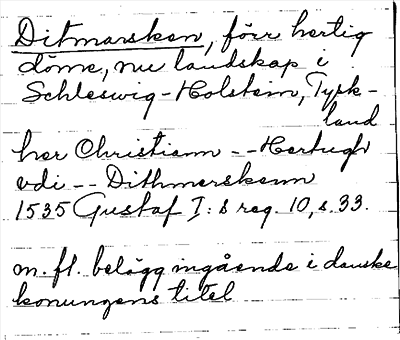 Ditmarsken, förr hertig
döme, nu landskap i
Schleswig-Holstein, Tysk-
land
her Christiann -- Hertugh
vdi -- Dithmerskenn
1535 Gustaf I:s reg. 10, s. 33.
m. fl. belägg ingående i danske
konungens titel